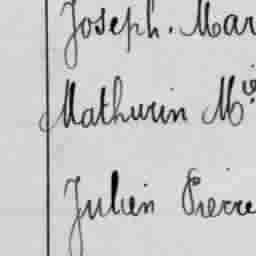 Joseph. Mar
Mathurin Mie
Julien Pierre